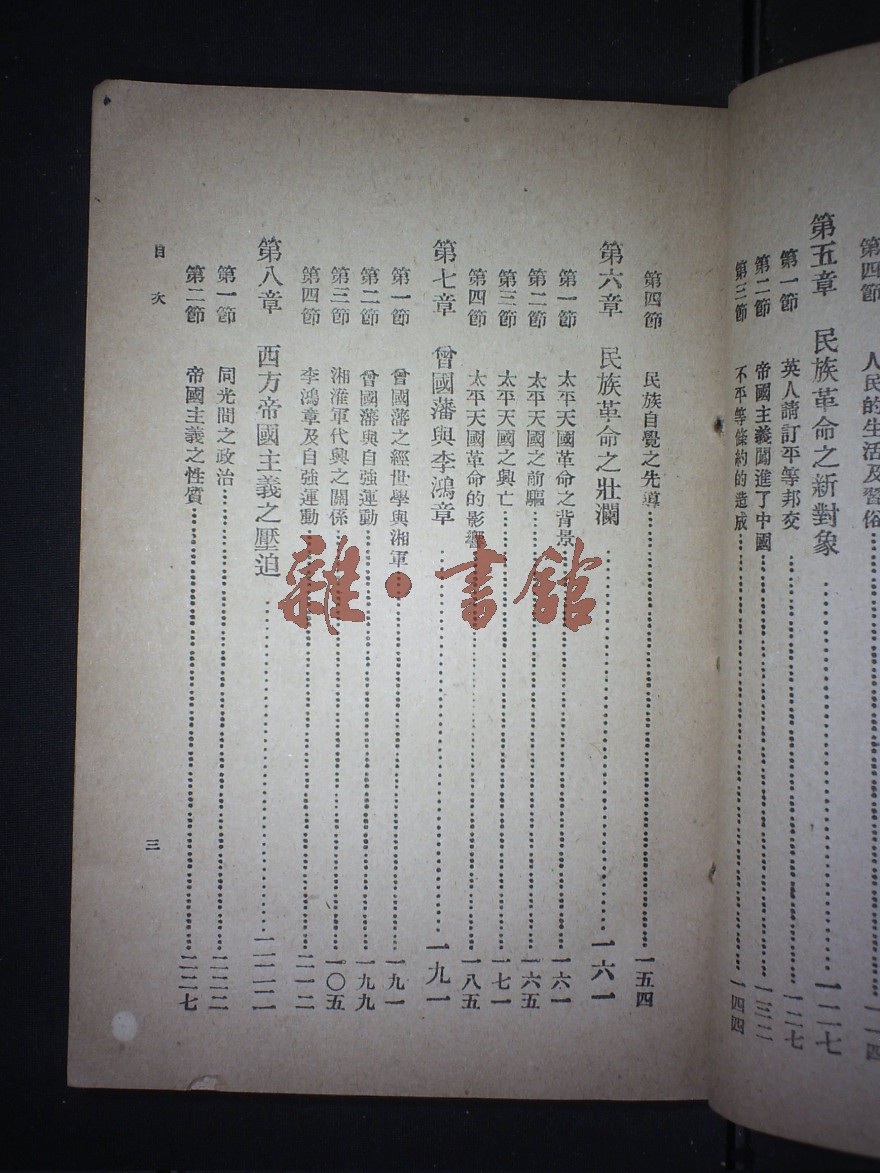 第四節 人民的生活及習俗……一一四
第五章 民族革命之新對象……一二七
第一節 英人請訂平等邦交……一二七
第二節 帝國主義闖進了中國……一三二
第三節 不平等條約的造成……一四四
第四節 民族自覺之先導……一五四
第六章 民族革命之壯瀾……一六一
第一節 太平天國革命之背景……一六一
第二節 太平天國之前驅……一六五
第三節 太平天國之興亡……一七一
第四節 太平天國革命的影響……一八五
第七章 曾國藩與李鴻章……一九一
第一節 曾國藩之經世學與湘軍……一九一
第二節 曾國藩與自強運動……一九九
第三節 湘淮軍代興之關係……二〇五
第四節 李鴻章及自強運動……二一二
第八章 西方帝國主義之壓迫……二二二
第一節 同光間之政治……二二二
第二節 帝國主義之性質……二二七
目次
三
雜·書館